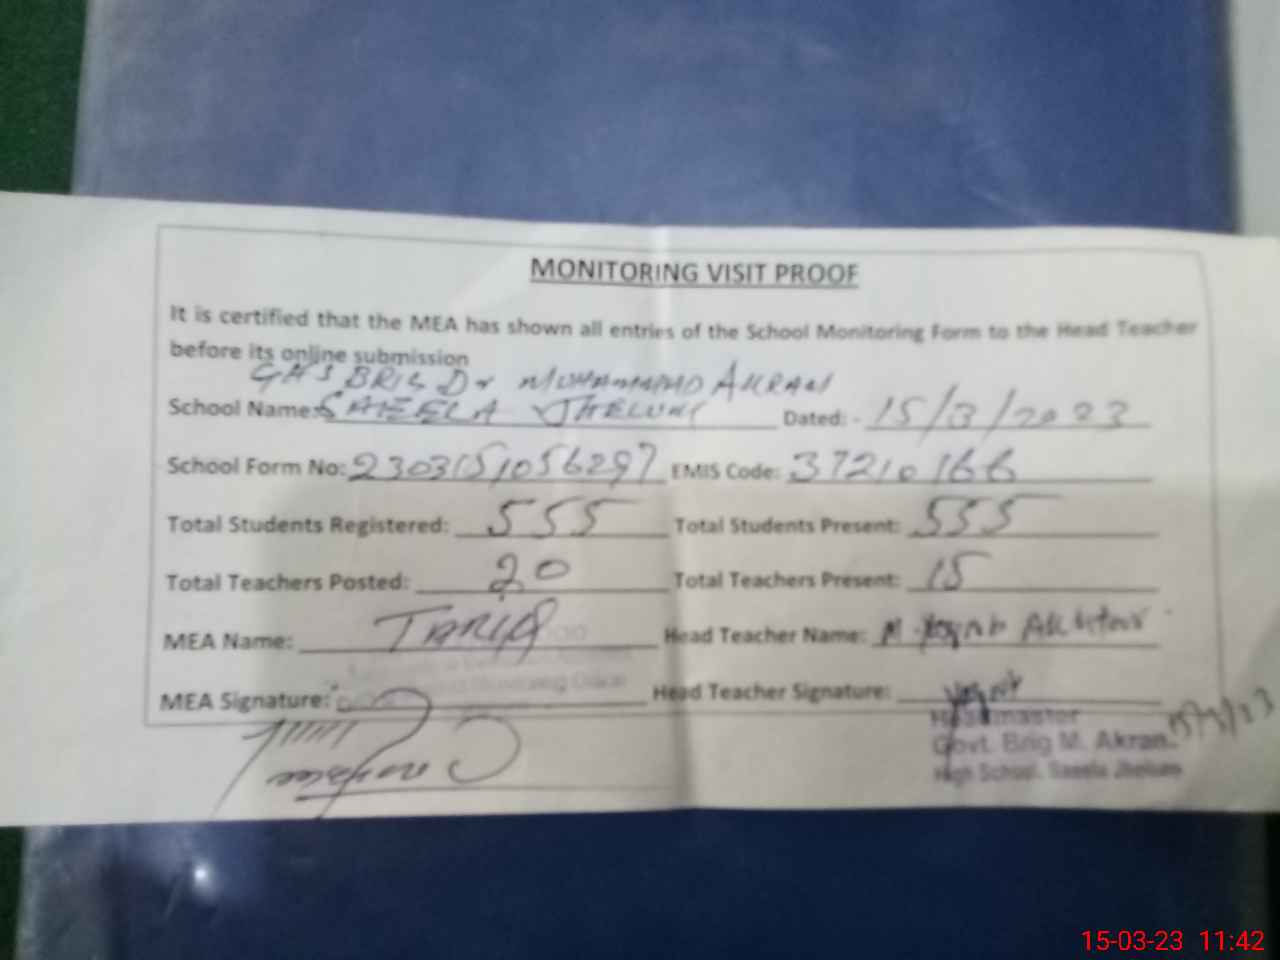 MONITORING VISIT PROOF
It is certified that the MEA has shown all entries of the School Monitoring Form to the Head Teacher
before its online submission
GHS BRIG Dr MUHAMMAD AKRAM
School Name: SAEELA JHELUM Dated: - 15/3/2023
School Form No: 2303151056297 EMIS Code: 37210166
Total Students Registered: 555 Total Students Present: 555
Total Teachers Posted: 20 Total Teachers Present: 15
MEA Name: TARIQ Head Teacher Name: M. Akhtar
MEA Signature: Head Teacher Signature:
Headmaster
Govt. Brig M. Akram
High School, Saeela Jhelum
15/3/23
15-03-23 11:42